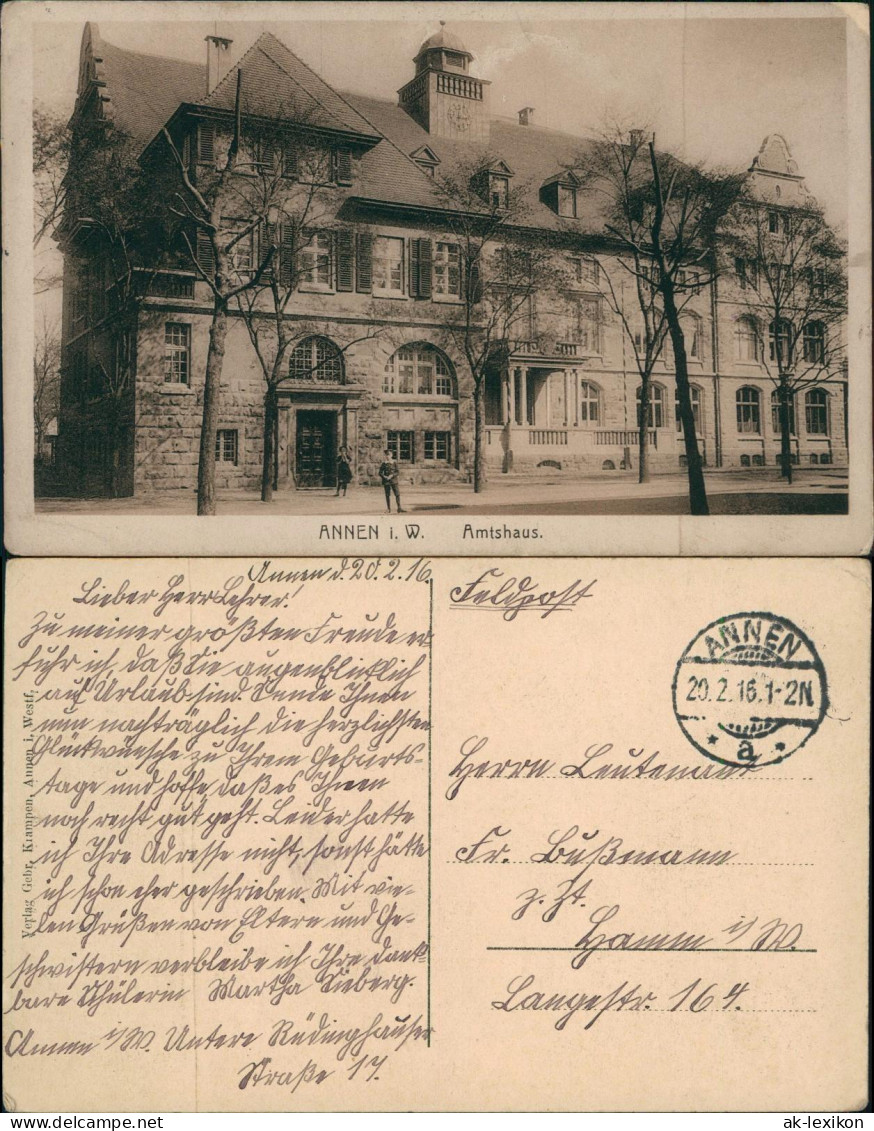 ANNEN i. W. Amtshaus.
Annen d. 20.2.16.
Lieber Herr Lehrer!
Zu meiner größten Freude er
fuhr ich, daß Sie augenblicklich
auf Urlaub sind. Sende Ihnen
nun nachträglich die herzlichsten
Glückwünsche zu Ihrem Geburts-
tage und hoffe, daß es Ihnen
noch recht gut geht. Leider hatte
ich Ihre Adresse nicht, sonst hätte
ich schon eher geschrieben. Mit vie-
len Grüßen von Eltern und Ge-
schwistern verbleibe ich Ihre dank-
bare Schülerin Martha Sieberg.
Annen i/W. Untere Rüdinghauser
Straße 17.
Verlag Gebr. Krampen, Annen i. Westf.
Feldpost
ANNEN
20.2.16.1-2N
* a *
Herrn Leutenant
Fr. Bußmann
z. Zt.
Hamm i/W.
Langestr. 164.
ak-lexikon